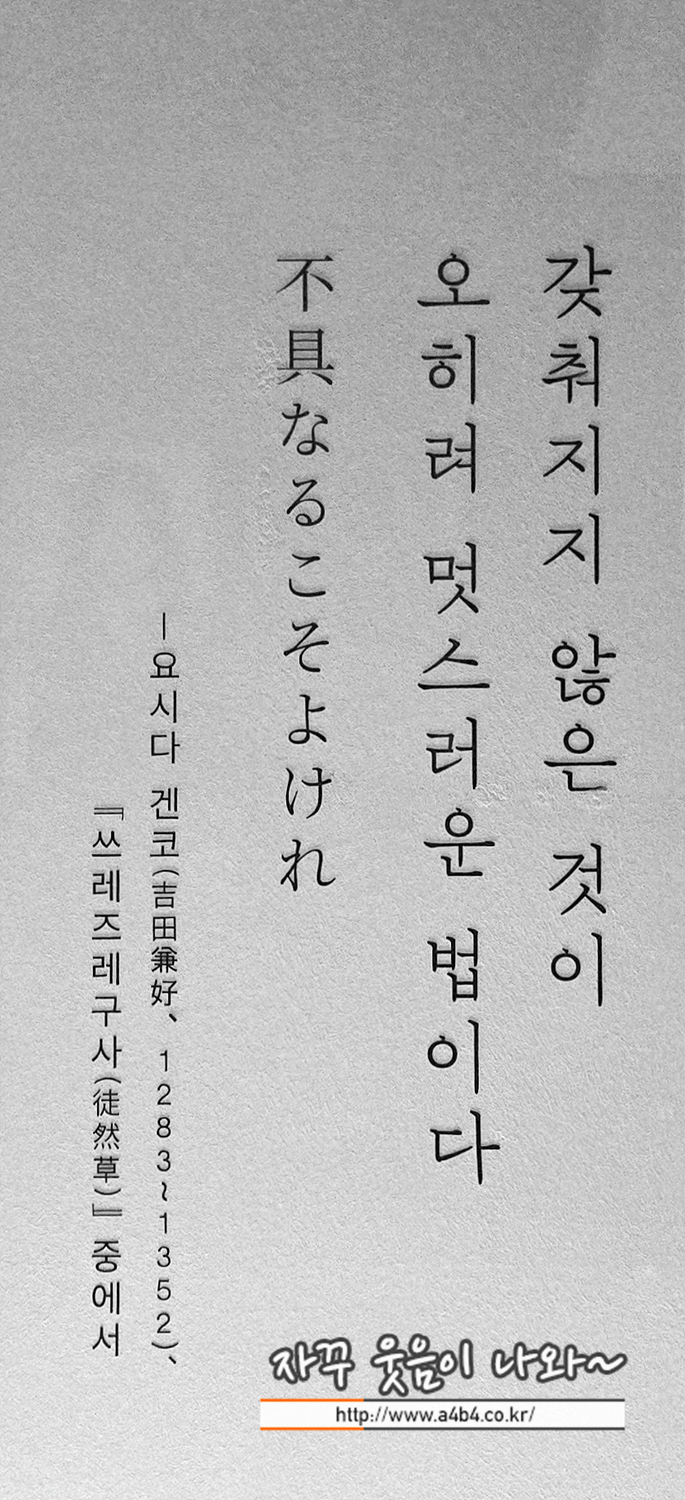 갖춰지지 않은 것이
오히려 멋스러운 법이다
不具なるこそよけれ
―요시다 겐코(吉田兼好、1283~1352)、
『쓰레즈레구사(徒然草)』중에서
자꾸 웃음이 나와~
http://www.a4b4.co.kr/